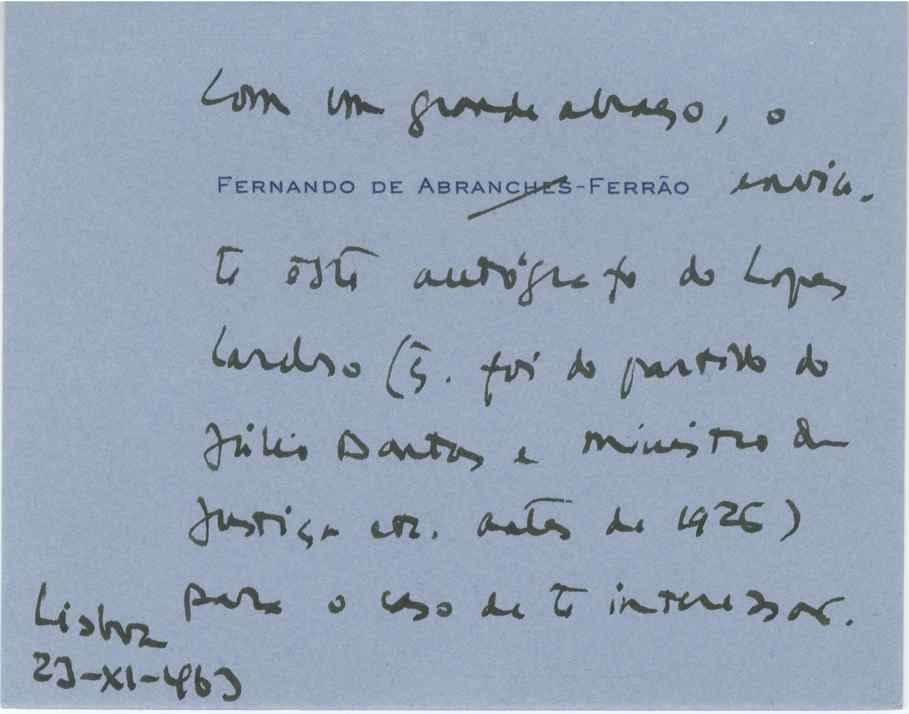 Com um grande abraço, o
FERNANDO DE ABRANCHES-FERRÃO envia-
te êste autógrafo do Lopes
Cardoso (q. foi do partido do
Júlio Dantas e ministro da
Justiça etc. antes de 1926)
para o caso de te interessar.
Lisboa
23-XI-963